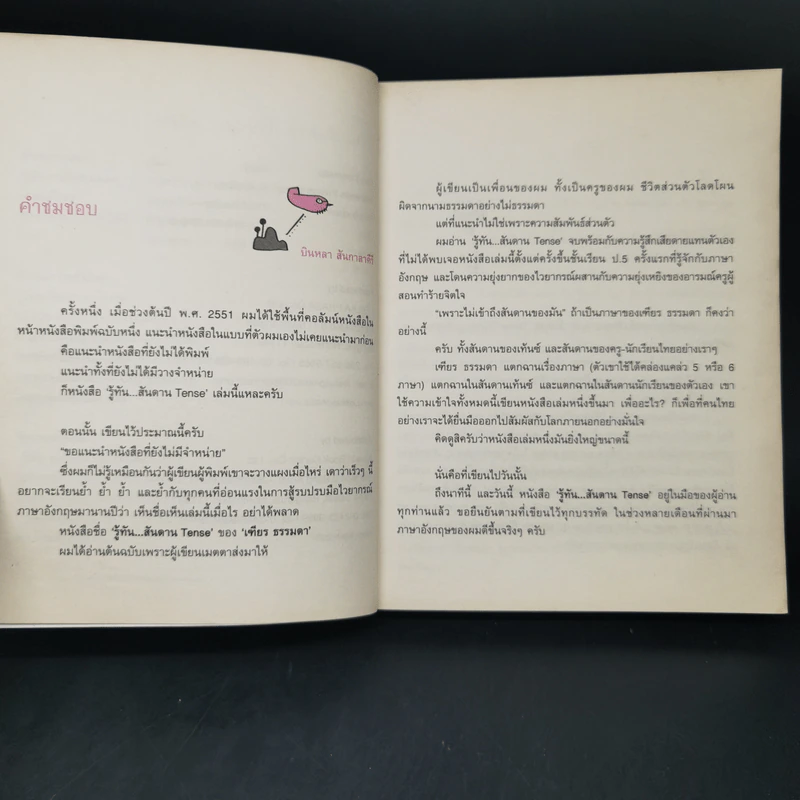 คำชมชอบ
บินหลา สันกาลาคีรี
ครั้งหนึ่ง เมื่อช่วงต้นปี พ.ศ. 2551 ผมได้ใช้พื้นที่คอลัมน์หนังสือใน
หน้าหนังสือพิมพ์ฉบับหนึ่ง แนะนำหนังสือในแบบที่ตัวผมเองไม่เคยแนะนำมาก่อน
คือแนะนำหนังสือที่ยังไม่ได้พิมพ์
แนะนำทั้งที่ยังไม่ได้มีวางจำหน่าย
ก็หนังสือ 'รู้ทัน...สันดาน Tense' เล่มนี้แหละครับ
ตอนนั้น เขียนไว้ประมาณนี้ครับ
"ขอแนะนำหนังสือที่ยังไม่มีจำหน่าย"
ซึ่งผมก็ไม่รู้เหมือนกันว่าผู้เขียนผู้พิมพ์เขาจะวางแผงเมื่อไหร่ เดาว่าเร็วๆ นี้
อยากจะเรียนย้ำ ย้ำ ย้ำ และย้ำกับทุกคนที่อ่อนแรงในการสู้รบปรบมือไวยากรณ์
ภาษาอังกฤษมานานปีว่า เห็นชื่อเห็นเล่มนี้เมื่อไร อย่าได้พลาด
หนังสือชื่อ 'รู้ทัน...สันดาน Tense' ของ 'เฑียร ธรรมดา'
ผมได้อ่านต้นฉบับเพราะผู้เขียนเมตตาส่งมาให้
ผู้เขียนเป็นเพื่อนของผม ทั้งเป็นครูของผม ชีวิตส่วนตัวโลดโผน
ผิดจากนามธรรมดาอย่างไม่ธรรมดา
แต่ที่แนะนำไม่ใช่เพราะความสัมพันธ์ส่วนตัว
ผมอ่าน 'รู้ทัน...สันดาน Tense' จบพร้อมกับความรู้สึกเสียดายแทนตัวเอง
ที่ไม่ได้พบเจอหนังสือเล่มนี้ตั้งแต่ครั้งขึ้นชั้นเรียน ป.5 ครั้งแรกที่รู้จักกับภาษา
อังกฤษ และโดนความยุ่งยากของไวยากรณ์ผสานกับความยุ่งเหยิงของอารมณ์ครูผู้
สอนทำร้ายจิตใจ
"เพราะไม่เข้าถึงสันดานของมัน" ถ้าเป็นภาษาของเฑียร ธรรมดา ก็คงว่า
อย่างนี้
ครับ ทั้งสันดานของเท้นซ์ และสันดานของครู-นักเรียนไทยอย่างเราๆ
เฑียร ธรรมดา แตกฉานเรื่องภาษา (ตัวเขาใช้ได้คล่องแคล่ว 5 หรือ 6
ภาษา) แตกฉานในสันดานเท้นซ์ และแตกฉานในสันดานนักเรียนของตัวเอง เขา
ใช้ความเข้าใจทั้งหมดนี้เขียนหนังสือเล่มหนึ่งขึ้นมา เพื่ออะไร? ก็เพื่อที่คนไทย
อย่างเราจะได้ยื่นมือออกไปสัมผัสกับโลกภายนอกอย่างมั่นใจ
คิดดูสิครับว่าหนังสือเล่มหนึ่งมันยิ่งใหญ่ขนาดนี้
นั่นคือที่เขียนไปวันนั้น
ถึงนาทีนี้ และวันนี้ หนังสือ 'รู้ทัน...สันดาน Tense' อยู่ในมือของผู้อ่าน
ทุกท่านแล้ว ขอยืนยันตามที่เขียนไว้ทุกบรรทัด ในช่วงหลายเดือนที่ผ่านมา
ภาษาอังกฤษของผมดีขึ้นจริงๆ ครับ